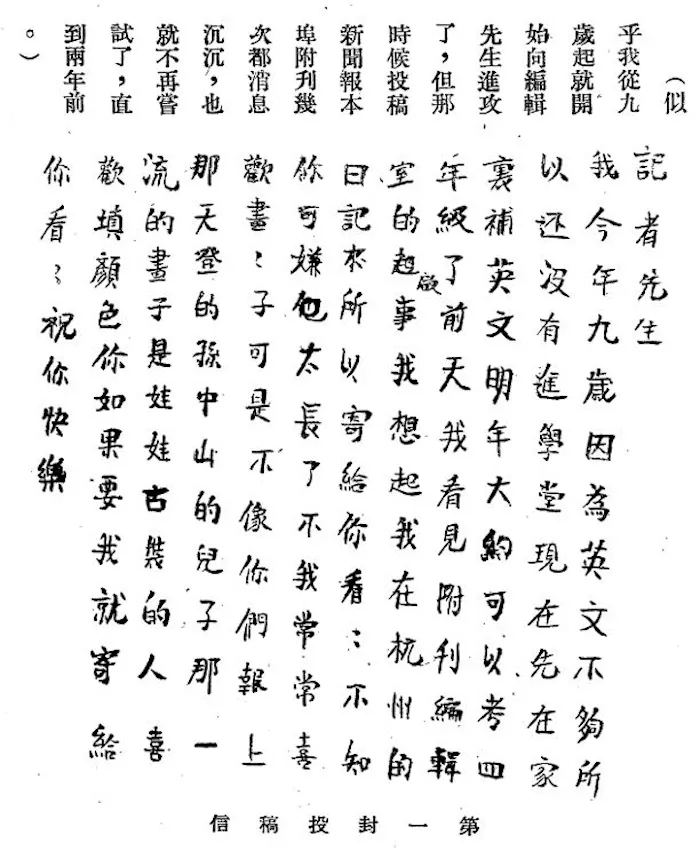 （似
乎我從九
歲起就開
始向編輯
先生進攻
了，但那
時候投稿
新聞報本
埠附刊幾
次都消息
沉沉，也
就不再嘗
試了，直
到兩年前
。）
記者先生
我今年九歲因為英文不夠所
以还沒有進學堂現在先在家
裏補英文明年大約可以考四
年級了前天我看見附刊編輯
室的啟事我想起我在杭州的
日記來所以寄給你看〻不知
你可嫌他太長了不我常常喜
歡畫〻子可是不像你們報上
那天登的孫中山的兒子那一
流的畫子是娃娃古裝的人喜
歡填顏色你如果要我就寄給
你看〻祝你快樂
第一封投稿信